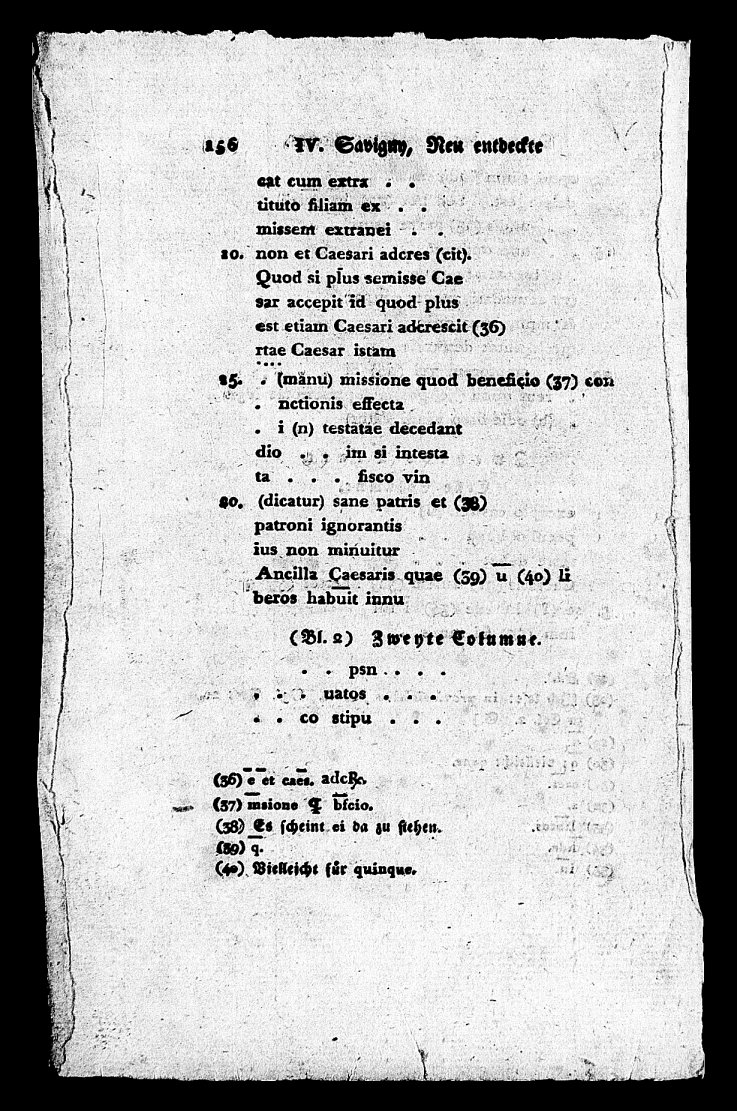 156 IV. Savigny, Neu entdeckte
cat cum extra . .
tituto filiam ex . .
missent extranei . .
20. non et Caesari adcres (cit).
Quod si plus semisse Cae
sar accepit id quod plus
est etiam Caesari adcrescit (36)
rtae Caesar istam
25. . (manu) missione quod beneficio (37) con
. nctionis effecta
. i (n) testatae decedant
dio . . im si intesta
ta . . . fisco vin
30. (dicatur) sane patris et (38)
patroni ignorantis
ius non minuitur
Ancilla Caesaris quae (39) u̅ (40) li
beros habuit innu
(Bl. 2) Zweyte Columne.
. . psn . . . .
. . . uatos . . .
. . co stipu . . .
(36) e̅ et caes̅. adcßc.
(37) m̅sione ¶ bfcio.
(38) Es scheint ei da zu stehen.
(39) q̅.
(40) Vielleicht für quinque.